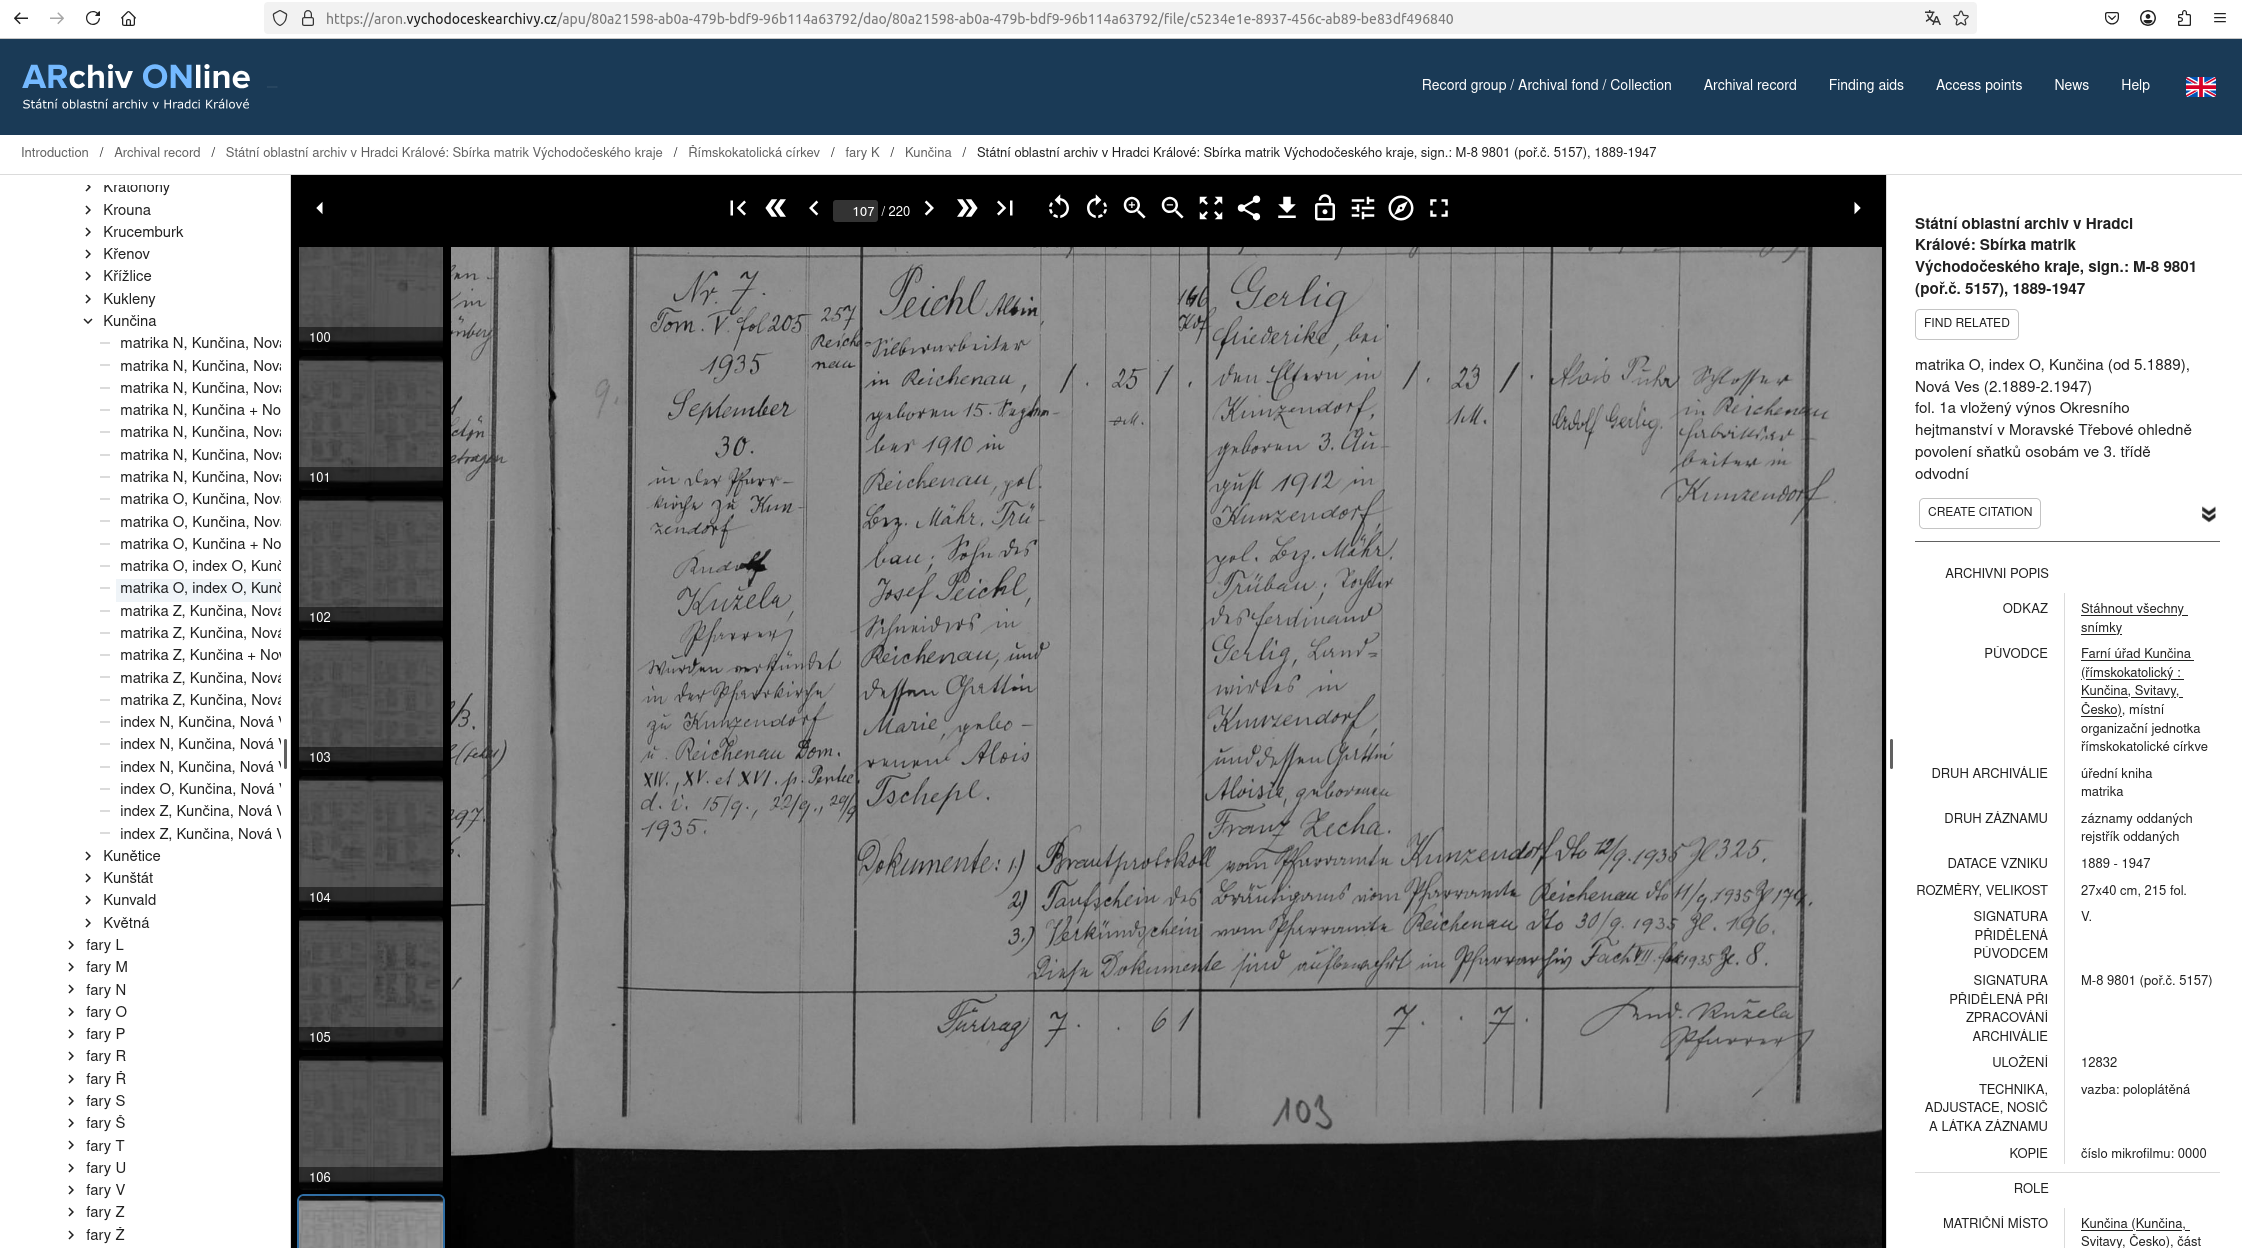 https://aron.vychodoceskearchivy.cz/apu/80a21598-ab0a-479b-bdf9-96b114a63792/dao/80a21598-ab0a-479b-bdf9-96b114a63792/file/c5234e1e-8937-456c-ab89-be83df496840
ARchiv ONline
Státní oblastní archiv v Hradci Králové
Record group / Archival fond / Collection
Archival record
Finding aids
Access points
News
Help
Introduction / Archival record / Státní oblastní archiv v Hradci Králové: Sbírka matrik Východočeského kraje / Římskokatolická církev / fary K / Kunčina / Státní oblastní archiv v Hradci Králové: Sbírka matrik Východočeského kraje, sign.: M-8 9801 (poř.č. 5157), 1889-1947
Kratonohy
Krouna
Krucemburk
Křenov
Křížlice
Kukleny
Kunčina
matrika N, Kunčina, Nová
matrika N, Kunčina, Nová
matrika N, Kunčina, Nová
matrika N, Kunčina + No
matrika N, Kunčina, Nová
matrika N, Kunčina, Nová
matrika N, Kunčina, Nová
matrika O, Kunčina, Nová
matrika O, Kunčina, Nová
matrika O, Kunčina + No
matrika O, index O, Kunč
matrika O, index O, Kunč
matrika Z, Kunčina, Nová
matrika Z, Kunčina, Nová
matrika Z, Kunčina + Nov
matrika Z, Kunčina, Nová
matrika Z, Kunčina, Nová
index N, Kunčina, Nová V
index N, Kunčina, Nová V
index N, Kunčina, Nová V
index O, Kunčina, Nová V
index Z, Kunčina, Nová V
index Z, Kunčina, Nová V
Kunětice
Kunštát
Kunvald
Květná
fary L
fary M
fary N
fary O
fary P
fary R
fary Ř
fary S
fary Š
fary T
fary U
fary V
fary Z
fary Ž
107 / 220
100
101
102
103
104
105
106
Nr. 7.
Tom. V. fol 205
1935
September
30.
in der Pfarr-
kirche zu Kun-
zendorf
Rudolf
Kužela,
Pfarrer
wurden verkündet
in der Pfarrkirche
zu Kunzendorf
u. Reichenau Dom.
XIV., XV. et XVI. p. Pentec.
d. i. 15/9., 22/9., 29/9
1935.
9.
257
Reiche-
nau
Peichl Alois,
Silberarbeiter
in Reichenau,
geboren 15. Septem-
ber 1910 in
Reichenau, pol.
Bez. Mähr. Trü-
bau; Sohn des
Josef Peichl,
Schneiders in
Reichenau, und
dessen Gattin
Marie, gebo-
renen Alois
Tschepl.
1 . 25 1 .
146
Kdf
Gerlig
Friederike, bei
den Eltern in
Kunzendorf,
geboren 3. Au-
gust 1912 in
Kunzendorf,
pol. Bez. Mähr.
Trübau; Tochter
des Ferdinand
Gerlig, Land-
wirtes in
Kunzendorf,
und dessen Gattin
Aloisie, geborenen
Franz Zecha.
1 . 23 1 .
Alois
Adolf Gerlig.
Schlosser
in Reichenau
Fabriksar-
beiter in
Kunzendorf
Dokumente: 1.) Brautprotokoll vom Pfarramte Kunzendorf dto 12/9.1935 Zl 325.
2) Taufschein des Bräutigams vom Pfarramte Reichenau dto 11/9.1935 Zl 179.
3.) Verkündschein vom Pfarramte Reichenau dto 30/9. 1935 Zl. 196.
Diese Dokumente sind aufbewahrt im Pfarrarchiv Fach VII. 1935 Zl. 8.
Fürtrag 7 . . 6 1 7 . . 7 .
Rud. Kužela
Pfarrer
103
Státní oblastní archiv v Hradci
Králové: Sbírka matrik
Východočeského kraje, sign.: M-8 9801
(poř.č. 5157), 1889-1947
FIND RELATED
matrika O, index O, Kunčina (od 5.1889),
Nová Ves (2.1889-2.1947)
fol. 1a vložený výnos Okresního
hejtmanství v Moravské Třebové ohledně
povolení sňatků osobám ve 3. třídě
odvodní
CREATE CITATION
ARCHIVNI POPIS
ODKAZ
Stáhnout všechny
snímky
PŮVODCE
Farní úřad Kunčina
(římskokatolický :
Kunčina, Svitavy,
Česko), místní
organizační jednotka
římskokatolické církve
DRUH ARCHIVÁLIE
úřední kniha
matrika
DRUH ZÁZNAMU
záznamy oddaných
rejstřík oddaných
DATACE VZNIKU
1889 - 1947
ROZMĚRY, VELIKOST
27x40 cm, 215 fol.
SIGNATURA
PŘIDĚLENÁ
PŮVODCEM
V.
SIGNATURA
PŘIDĚLENÁ PŘI
ZPRACOVÁNÍ
ARCHIVÁLIE
M-8 9801 (poř.č. 5157)
ULOŽENÍ
12832
TECHNIKA,
ADJUSTACE, NOSIČ
A LÁTKA ZÁZNAMU
vazba: poloplátěná
KOPIE
číslo mikrofilmu: 0000
ROLE
MATRIČNÍ MÍSTO
Kunčina (Kunčina,
Svitavy, Česko), část